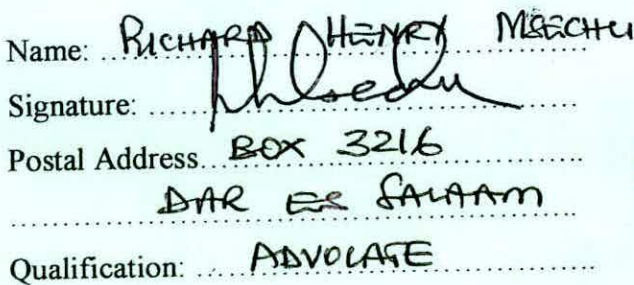 Name: RICHARD HENRY MSECHU
Signature:
Postal Address BOX 3216
DAR ES SALAAM
Qualification: ADVOCATE